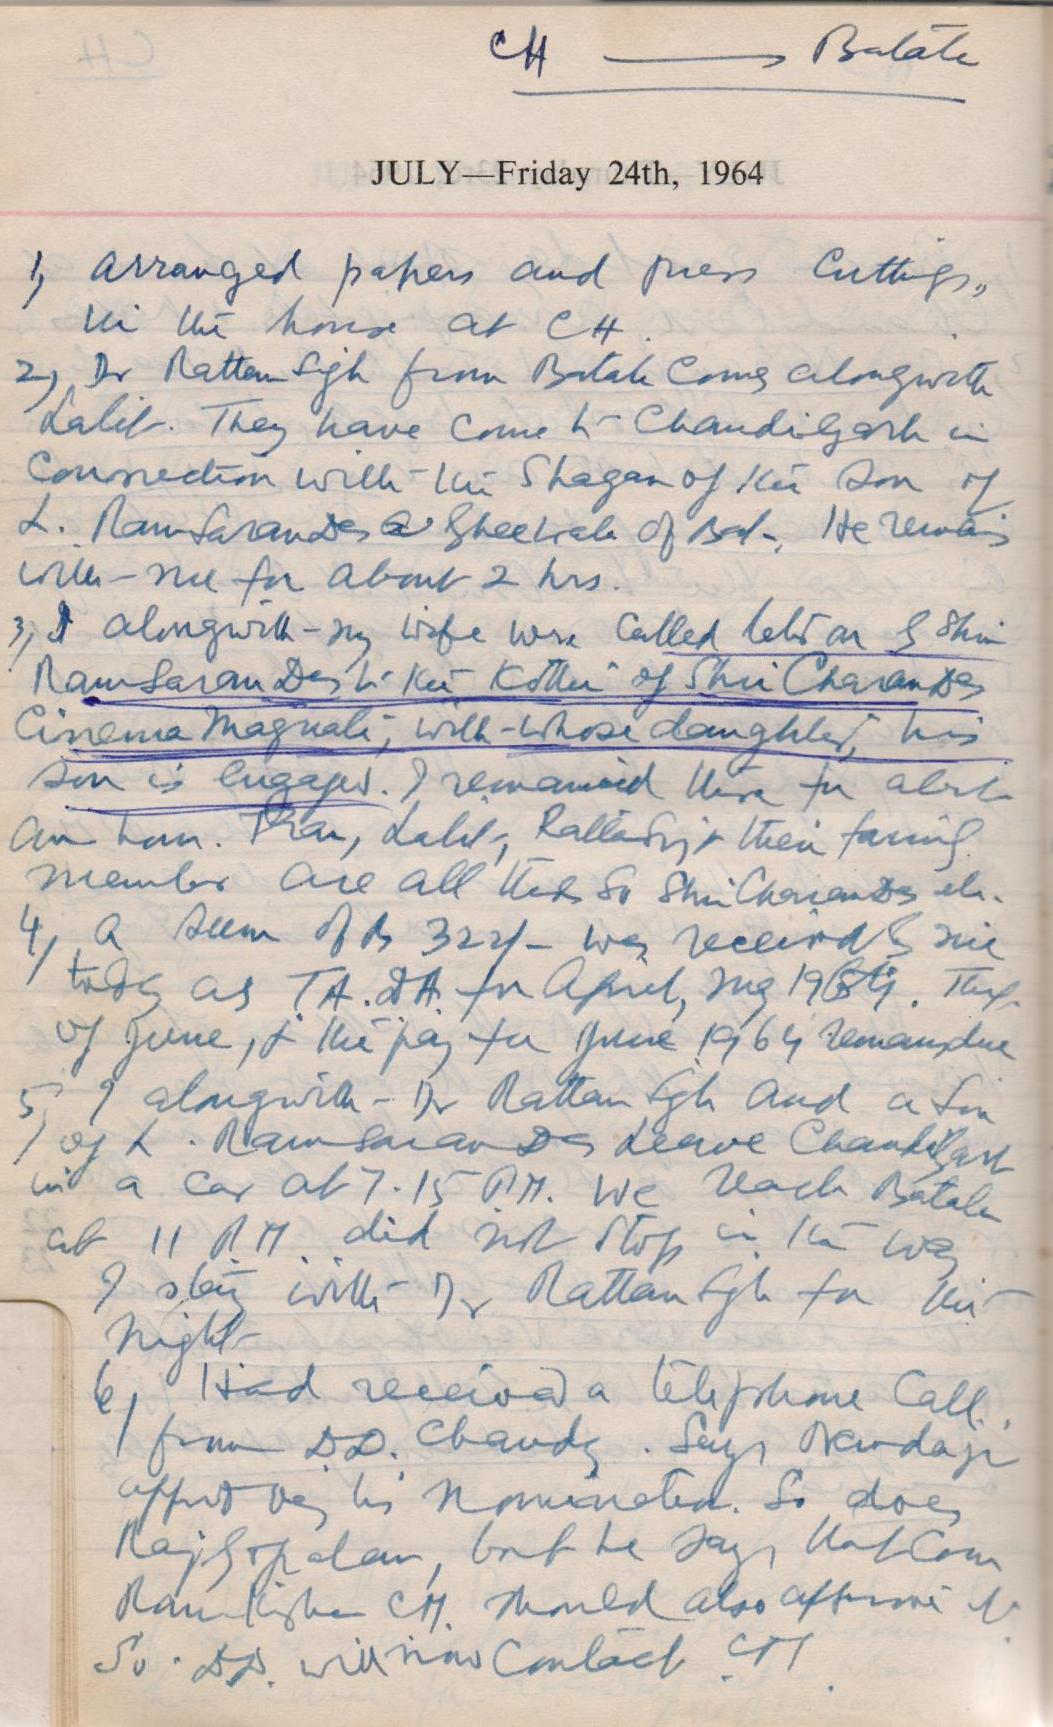 CH → Batala
JULY—Friday 24th, 1964
1, Arranged papers and press Cuttings,
in the house at CH.
2, Dr Rattan Sigh from Batala Comes alongwith
Lalit. They have come to Chandigarh in
Connection with the Shagan of the son of
L. Ram Saran Das Gheewala of Bat-. He remains
with me for about 2 hrs.
3, I alongwith my wife were Called by Shri
Ram Saran Das to the Kothi of Shri Charan Das
Cinema Magnate, with whose daughter, his
son is engaged. I remained there for about
an hour. Pran, Lalit, & their family
member are all there So Shri Charan Das etc.
4, A sum of Rs 322/- was received by me
today as T.A. D.A. for April, May 1964. That
of June, & the pay for June 1964 remain due
5, I alongwith Dr Rattan Sgh and a son
of L. Ram Saran Das Leave Chandigarh
in a car at 7.15 P.M. We reach Batala
at 11 P.M. did not stop in the way
I stay with Dr Rattan Sgh for the
Night
6, Had received a telephone Call
from D.D. Chandy. Says Nandaji
approves his Nomination. So does
Rajgopalan, but he says that Com
Ram Kishan CM. should also approve it.
So D.D. will now Contact CM